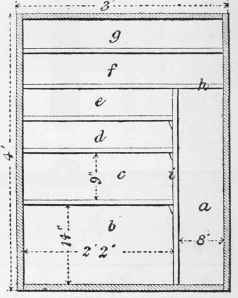 3'
g
f
h
e
d
4'
9"
c
i
a
b
14"
2' 2"
8'